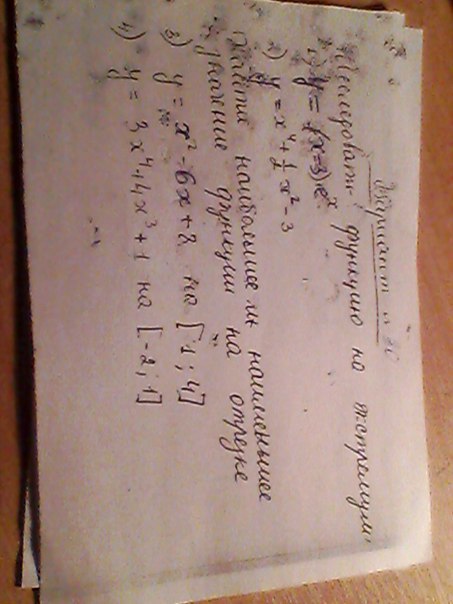 Вариант №
Исследовать функцию на экстремум
1) y = (x-3)e^x
2) y = x^4 + 1/2 x^2 - 3
Найти наибольшее и наименьшее
значение функции на отрезке
3) y = x^2 - 6x + 8 на [1; 4]
4) y = 3x^4 + 4x^3 + 1 на [-2; 1]